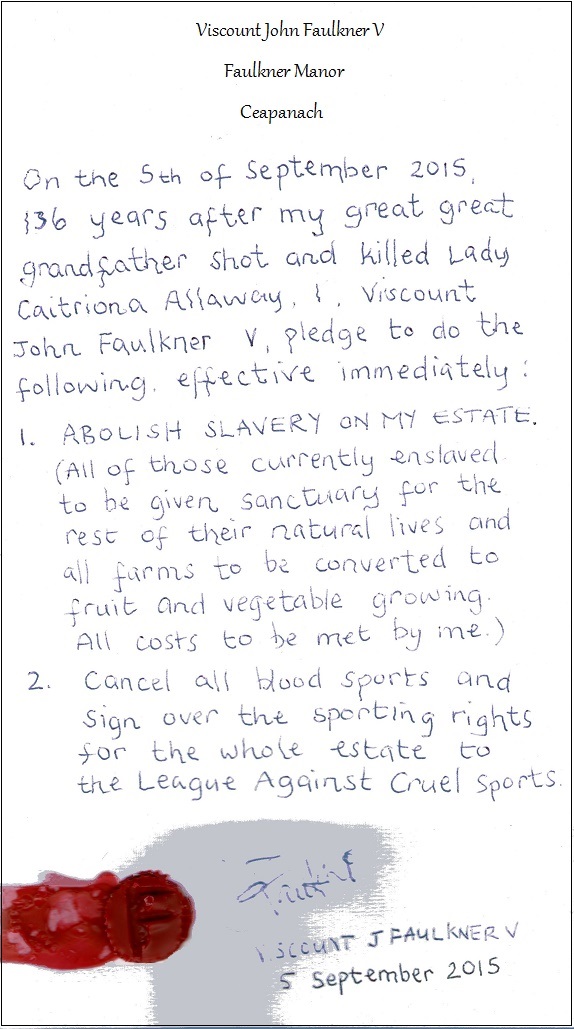 Viscount John Faulkner V
Faulkner Manor
Ceapanach
On the 5th of September 2015,
136 years after my great great
grandfather shot and killed Lady
Caitriona Allaway, I, Viscount
John Faulkner V, pledge to do the
following, effective immediately:
1. ABOLISH SLAVERY ON MY ESTATE.
(All of those currently enslaved
to be given sanctuary for the
rest of their natural lives and
all farms to be converted to
fruit and vegetable growing.
All costs to be met by me.)
2. Cancel all blood sports and
sign over the sporting rights
for the whole estate to
the League Against Cruel Sports.
VISCOUNT J FAULKNER V
5 September 2015